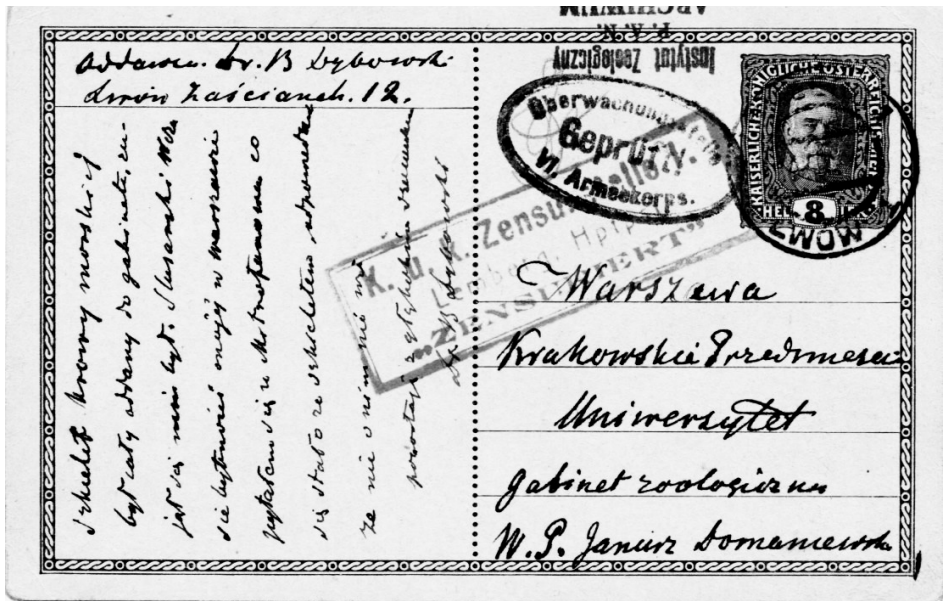 ARCHIWUM
P. A. N.
Instytut Zoologiczny
Oddawca. Dr. B Dybowski
Lwów Zaścianek. 12.
Szkielet Krowy morskiej
był cały oddany do gabinetu, za-
jął się nim był. Ślusarski Wsza
się bytności mojej w Warszawie
pytałem się u co
się stało ze szkieletem, odpowiedzia
że nic o nim nie wi
pozostaję z głębokim szacunkiem
Dybowski
Überwachungsstelle
Geprüft.
VI. Armeekorps.
K. u. k. Zensurstelle
Lemberg, Hptp
„ZENSURIERT”
KAISERLICHE KÖNIGLICHE ÖSTERREICHISCHE
HELLER 8
LWÓW
Warszawa
Krakowskie Przedmieście
Uniwersytet
gabinet zoologiczny
W. P. Janusz Domaniewski